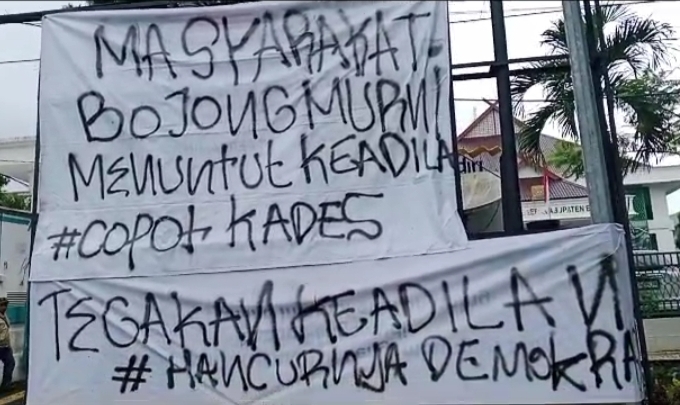 MASYARAKAT.
BOJONG MURNI
MENUNTUT KEADILA
#COPOT KADES
TEGAKAN KEADILAN
# HANCURNJA DEMOKRA
diri
KABUPATEN